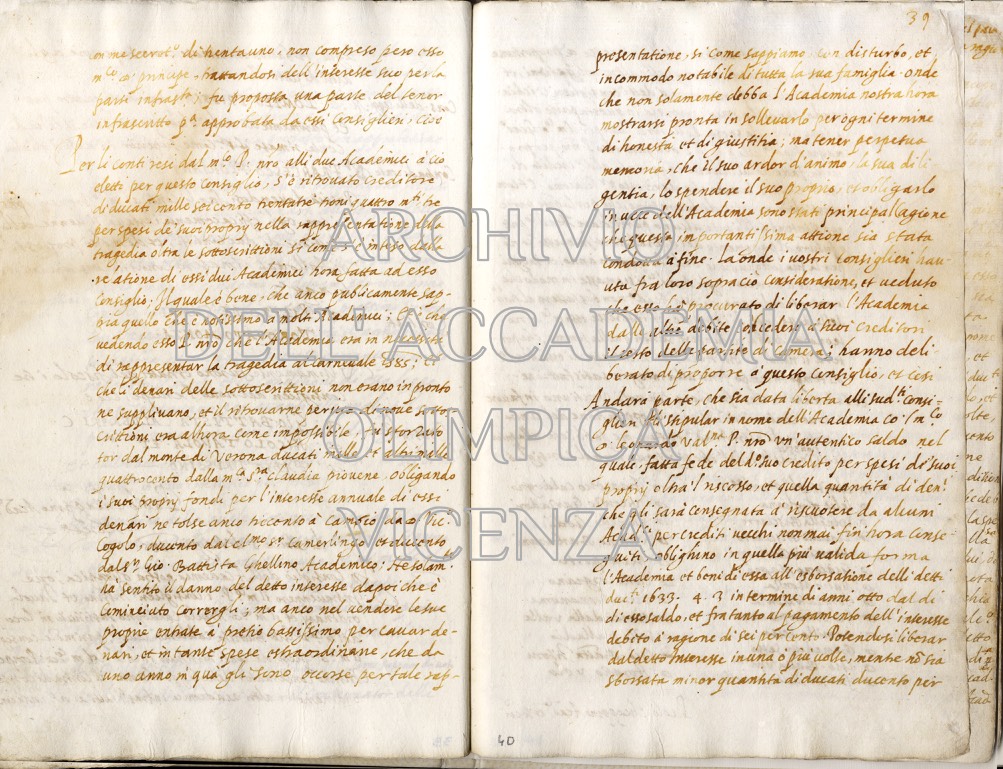 di trentauno, non compreso pero esso
principe, trattandosi dell'interesse suo per la
parte infras.ta; fu proposta una parte del tenor
infrascritto p.a approbata da essi Consiglieri, cioè
Per li conti resi dal m.co P. nro alli due Academici a ciò
eletti per questo Consiglio, s'è ritrovato creditore
di ducati mille seicento trentatre troni quattro m.ti tre
per spesi de suoi proprij nella rappresentatione della
tragedia oltra le sottoscrittioni si come è inteso dalla
relatione di essi due Academici hora fatta ad esso
Consiglio; Il quale è bene, che anco publicamente sap-
pia quello che è notissimo a molti Academici; che
vedendo esso P. nro che l'Academia era in necessità
di rappresentar la tragedia al carnevale 1585; et
che li denari delle sottoscrittioni non erano in pronto
ne supplivano, et il ritrovarne per via di nove sotto
scrittioni era alhora come impossibile, fu sforzato
tor dal monte di Verona ducati mille, et altri mille
quattrocento dalla m.ca S.ra Claudia piovene, obligando
i suoi proprij fondi per l'interesse annuale di essi
denari ne tolse anco trecento à Cambio da Vic.
Cogolo, ducento dal cl.mo s.r Camerlingo, et ducento
dal s.r Gio. Battista Ghellino Academico: Ne solam.
hà sentito il danno del detto interesse dapoi che è
cominciato correrli; ma anco nel vendere le sue
proprie entrate à pretio bassissimo per cavar de-
nari, et in tante spese estraordinarie, che da
uno anno in qua gli sono occorse per tale rap-
39
presentatione, si come sappiamo con disturbo, et
incommodo notabile di tutta la sua famiglia. onde
che non solamente debba l'Academia nostra hora
mostrarsi pronta in sollevarlo per ogni termine
di honestà et di giustitia; ma tener perpetua
memoria, che il suo ardor d'animo, la sua dili
gentia, lo spendere il suo proprio, et obligarlo
in vece dell'Academia sono stati principal cagione
che questa importantissima attione sia stata
condotta à fine. La onde i vostri consiglieri hav-
uta fra loro sopra ciò consideratione, et veduto
che esso hà procurato di liberar l'Academia
dalli altri debiti, concedere a suoi creditori
il resto delle partite di camera; hanno deli
berato di proporre à questo Consiglio, et cosi
Andarà parte, che sia data libertà alli sud.ti Consi-
glieri di stipular in nome dell'Academia co'l m.co
Leonardo Val.na P. nro un'autentico saldo nel
quale, fatta fede del d.o suo credito per spesi de suoi
proprij oltra'l riscosso, et quella quantità di den.ri
che gli sarà consegnata à riscuotere da alcuni
Acad.ci per crediti vecchi non mai fin hora conse-
guiti, oblighino in quella più valida forma
l'Academia et beni di essa all'esborsatione delli detti
duc.ti 1633. 4. 3 in termine di anni otto dal dì
di esso saldo, et fra tanto al pagamento dell'interesse
debito à ragione di sei per cento. Potendosi liberar
dal detto interesse in una o più volte, mentre nõ sia
sborsata minor quantità di ducati ducento per
40
ARCHIVIO
DELL'ACCADEMIA
OLIMPICA
VICENZA